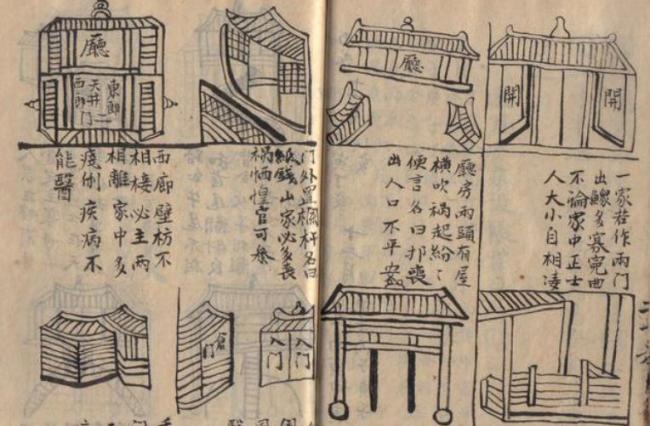 開
開
一家若作兩門
出鰥多寡冤曲
不論家中正士
人大小自相凌
廳
廳房兩頭有屋
橫吹禍起紛〻
便言名曰喪
出人口不平安
门外置欄杆名曰
紙錢山家必多喪
禍恓惶官可參
廳
東郎
天井
西郎门
西廊壁枋不
相接必主兩
相離家中多
倒疾病不
能醫
入门
入门
门